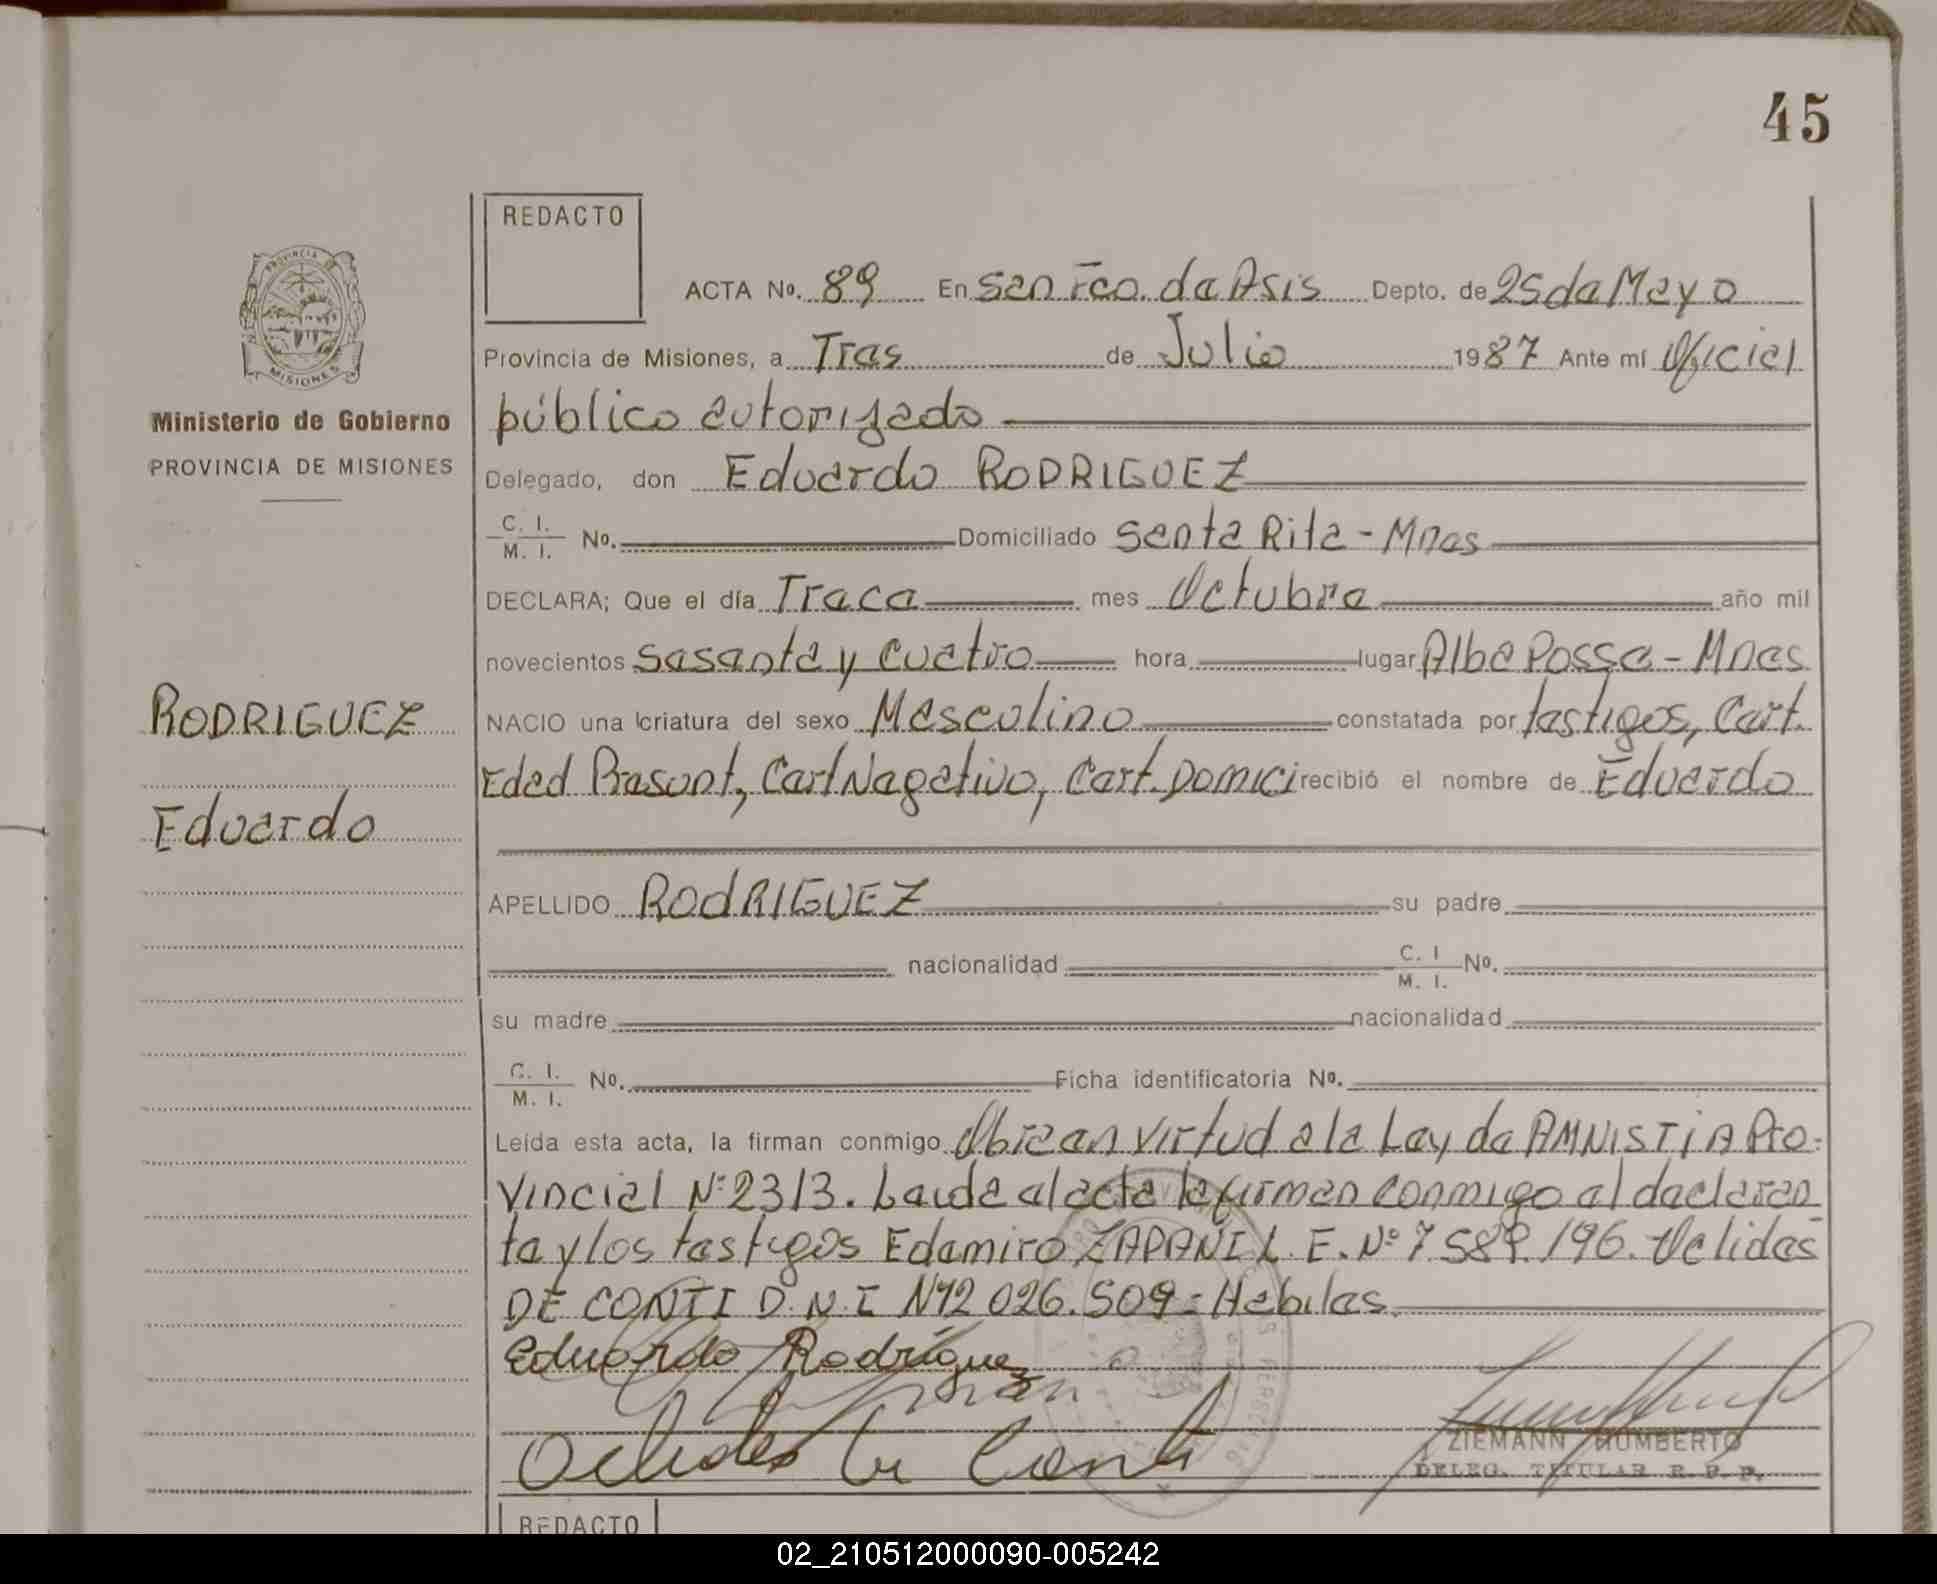 45
REDACTO
ACTA Nº. 89 En San Fco. de Asis Depto. de 25 de Mayo
Provincia de Misiones, a Tres de Julio 1987 Ante mí Oficial
público autorizado
Delegado, don Eduardo RODRIGUEZ
C. I.
M. I. Nº. Domiciliado Santa Rita - Mnes
DECLARA; Que el día Trece mes Octubre año mil
novecientos Sesenta y Cuatro hora lugar Alba Posse - Mnes
NACIO una criatura del sexo Masculino constatada por testigos, Cert.
Edad Presunt, Cert Negativo, Cert. Domici recibió el nombre de Eduardo
APELLIDO RODRIGUEZ su padre
nacionalidad C. I. Nº.
M. I.
su madre nacionalidad
C. I.
M. I. Nº. Ficha identificatoria Nº.
Leída esta acta, la firman conmigo Obra en virtud a la Ley de AMNISTIA Pro-
vincial Nº 2313. Leida el acta la firman conmigo el declaran-
te y los testigos Edemiro ZAPANI L. E. Nº 7 589.196. Velides
DE CONTI D.N.I Nº 12 026.509 - Habiles.
Eduardo Rodríguez
ZIEMANN HUMBERTO
DELEG. TITULAR R. P. P.
PROVINCIA DE
MISIONES
Ministerio de Gobierno
PROVINCIA DE MISIONES
RODRIGUEZ
Eduardo
REDACTO
02_210512000090-005242